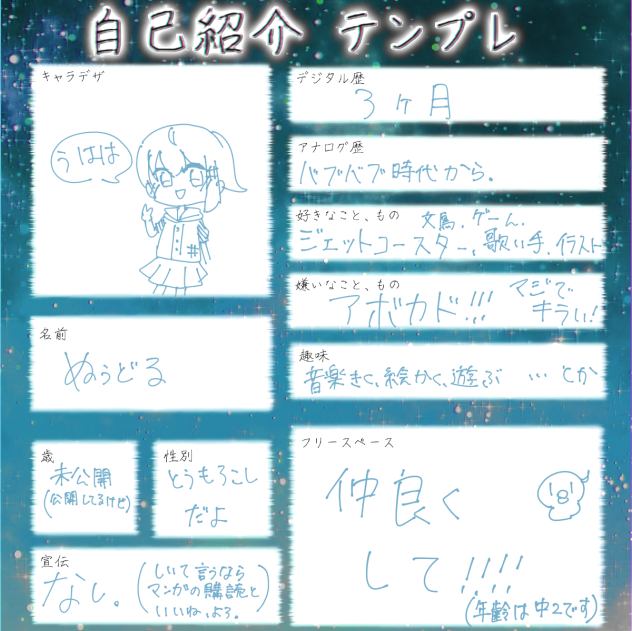 自己紹介 テンプレ
キャラデザ
うはは
デジタル歴
3ヶ月
アナログ歴
バブバブ時代から。
好きなこと、もの
文鳥、ゲーム、
ジェットコースター、歌い手、イラスト
嫌いなこと、もの
アボカド!!!
マジで
キラい!
名前
ぬぅどる
趣味
音楽きく、絵かく、遊ぶ …とか
歳
未公開
(公開してるけど)
性別
とうもろこし
だよ
フリースペース
仲良く
して!!!!
(年齢は中2です)
宣伝
なし。
(しいて言うなら
マンガの購読と
いいね、よろ。)